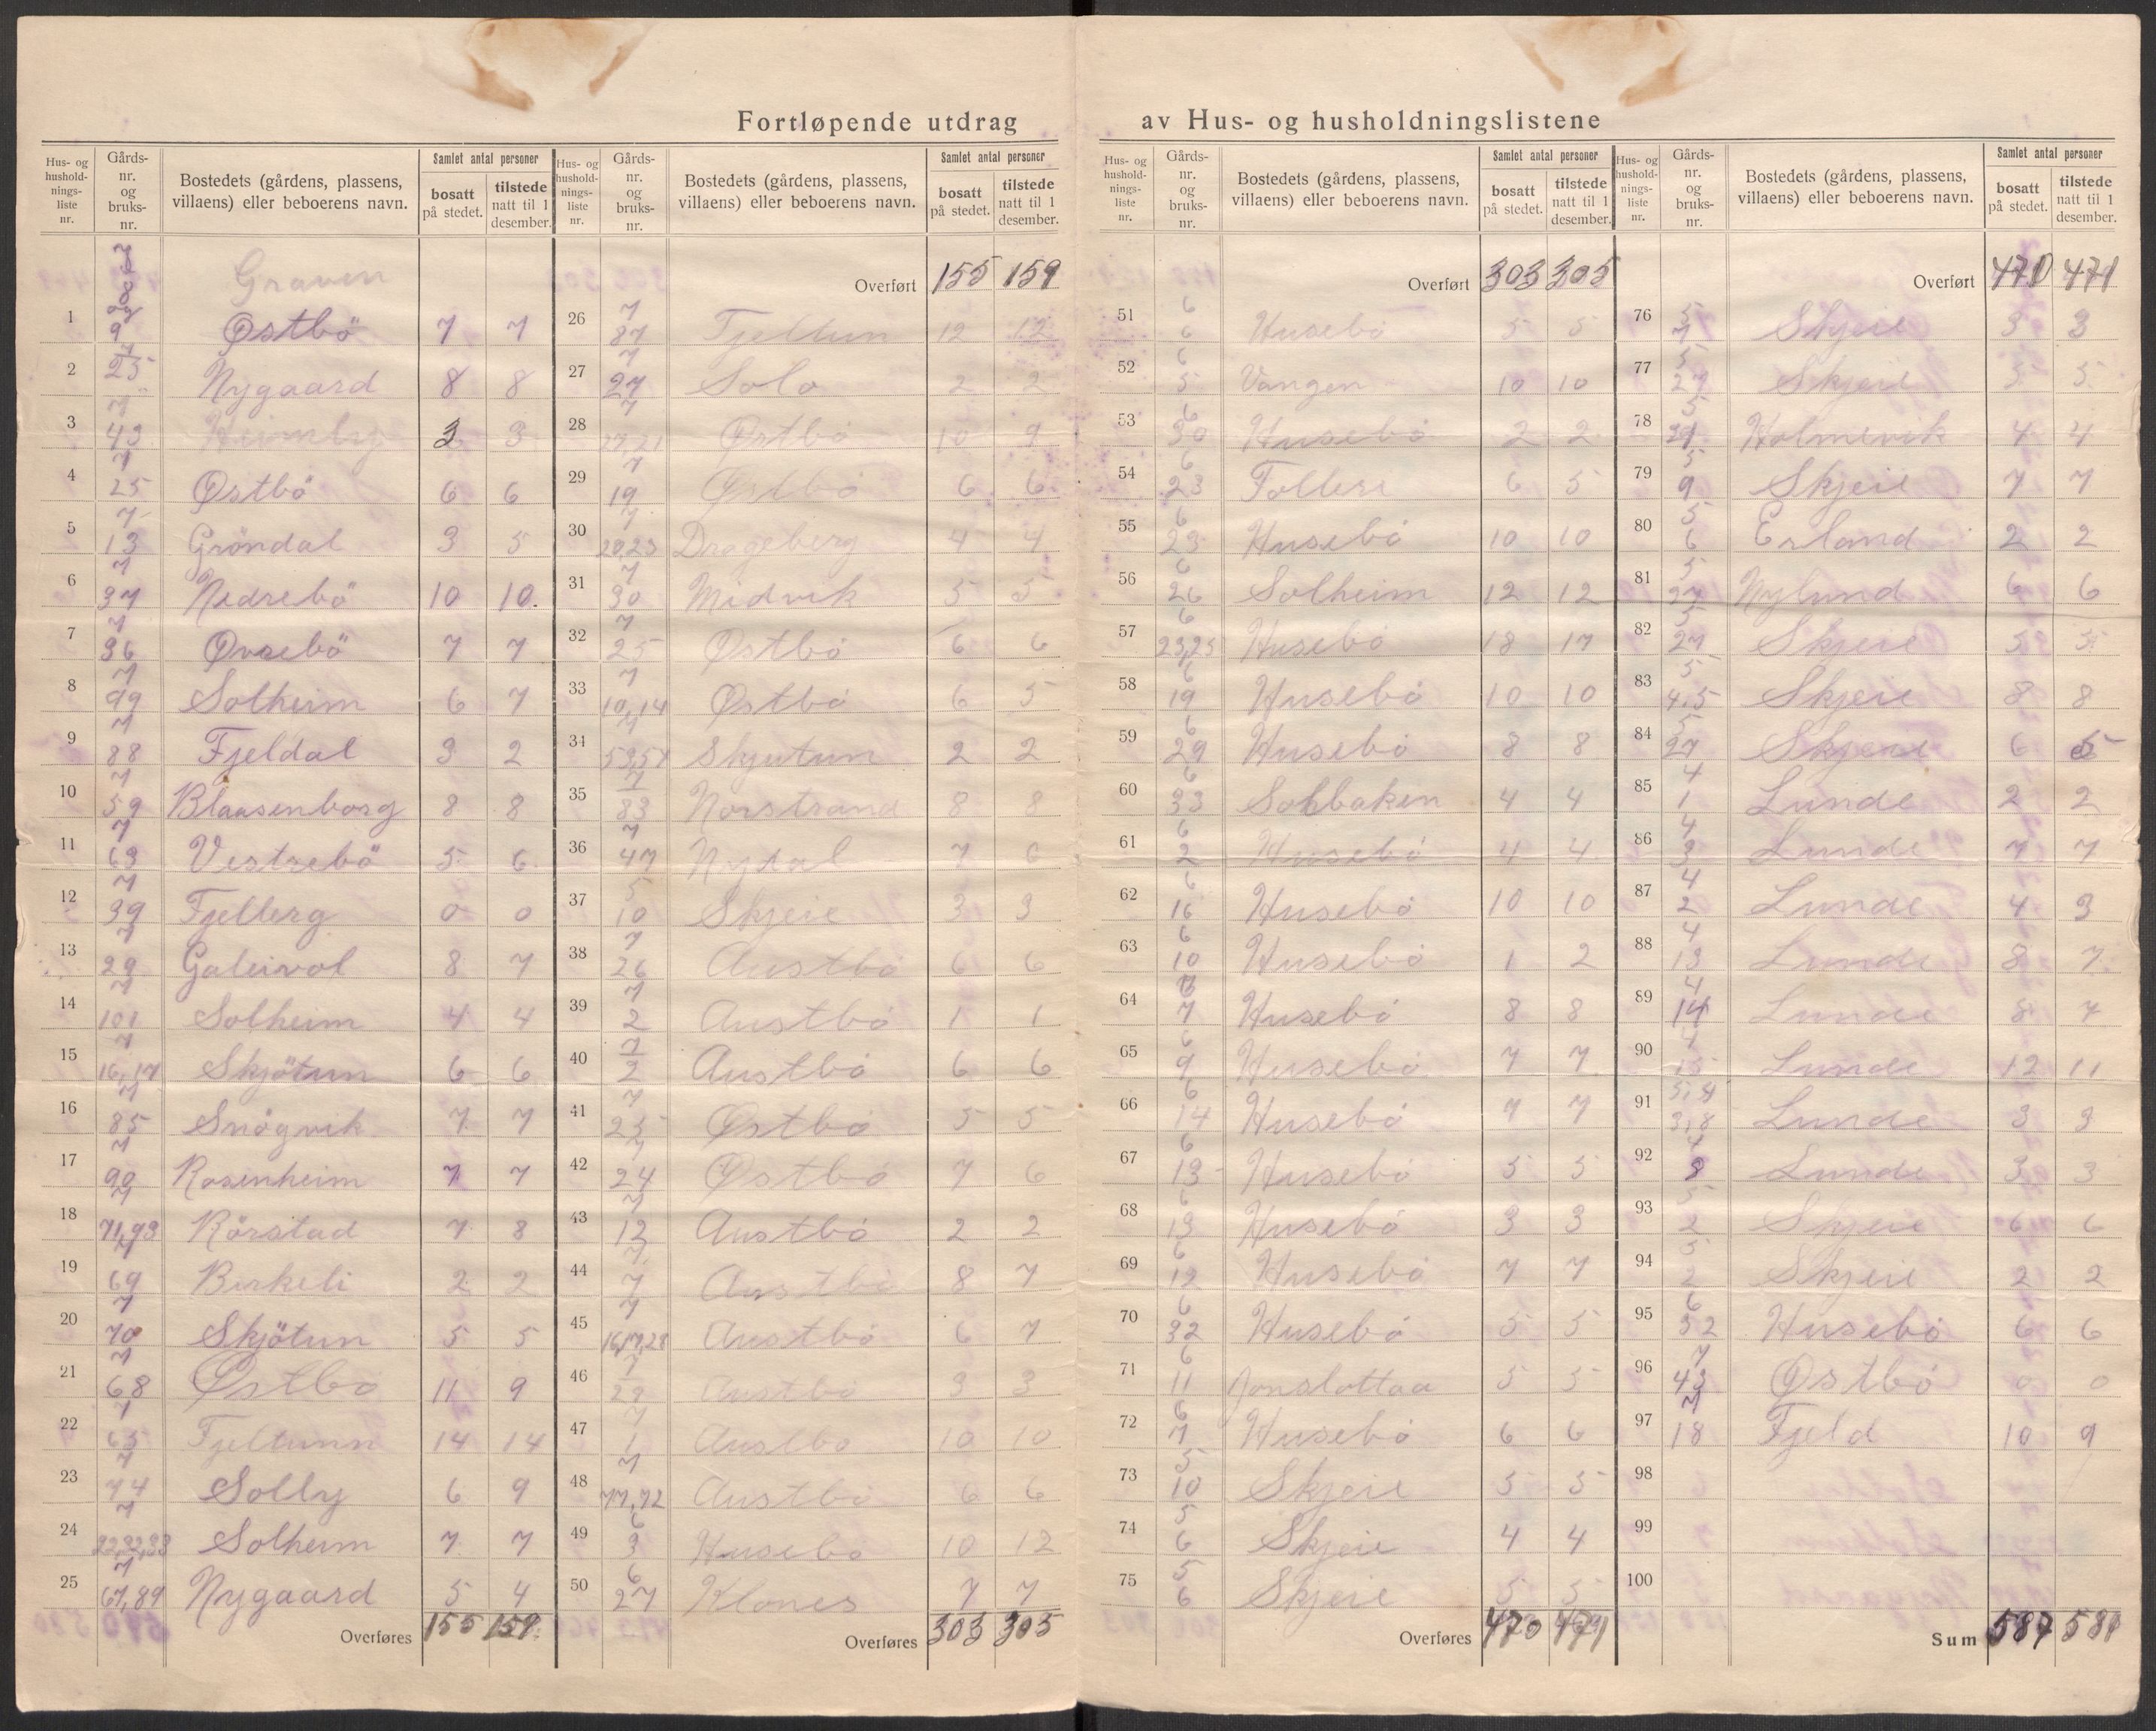 Fortløpende utdrag av Hus- og husholdningslistene
Hus- og hushold-nings-liste nr. | Gårds-nr. og bruks-nr. | Bostedets (gårdens, plassens, villaens) eller beboerens navn. | Samlet antal personer | bosatt på stedet. | tilstede natt til 1 desember.
Graven
1 Østbö 7 7
2 7 25 Nygaard 8 8
3 7 43 3 3
4 7 25 Østbö 6 6
5 7 13 Gröndal 3 5
6 7 37 Nedrebö 10 10.
7 7 36 Øvrebö 7 7
8 7 99 Solheim 6 7
9 7 88 Fjeldal 3 2
10 7 59 Blaasenborg 8 8
11 7 63 Vestrebö 5 6
12 7 39 Fjellerg 0 0
13 7 29 Galeivol 8 7
14 7 101 Solheim 4 4
15 7 16,17 Skjötun 6 6
16 7 85 Snögvik 7 7
17 7 90 Rosenheim 7 7
18 7 71,93 Rörstad 7 8
19 7 69 Birkeli 2 2
20 7 70 Skjötun 5 5
21 7 68 Østbö 11 9
22 7 65 Fjeltunn 14 14
23 7 44 Solly 6 9
24 7 Solheim 7 7
25 7 67,89 Nygaard 5 4
Overføres 155 159
Hus- og hushold-nings-liste nr. | Gårds-nr. og bruks-nr. | Bostedets (gårdens, plassens, villaens) eller beboerens navn. | Samlet antal personer | bosatt på stedet. | tilstede natt til 1 desember.
Overført 155 159
26 7 87 Fjeltun 12 12
27 7 27 Solo 2 2
28 7 27,21 Østbö 10 9
29 7 19 Østbö 6 6
30 7 20,23 Drageberg 4 4
31 7 30 Midvik 5 5
32 7 25 Østbö 6 6
33 7 10,14 Østbö 6 5
34 7 Skjutun 2 2
35 7 83 Norstrand 8 8
36 7 47 Nydal 7 6
37 5 10 Skjeie 3 3
38 7 26 Austbö 6 6
39 7 2 Austbö 1 1
40 7 2 Austbö 6 6
41 7 25 Østbö 5 5
42 7 24 Østbö 7 6
43 7 12 Austbö 2 2
44 7 7 Austbö 8 7
45 7 16,17,28 Austbö 6 7
46 7 29 Austbö 3 3
47 7 1 Austbö 10 10
48 7 77,72 Austbö 6 6
49 6 3 Husebö 10 12
50 6 27 Klones 7 7
Overføres 303 305
Hus- og hushold-nings-liste nr. | Gårds-nr. og bruks-nr. | Bostedets (gårdens, plassens, villaens) eller beboerens navn. | Samlet antal personer | bosatt på stedet. | tilstede natt til 1 desember.
Overført 303 305
51 6 6 Husebö 5 5
52 6 5 Vangen 10 10
53 6 30 Husebö 2 2
54 6 23 Follese 6 5
55 6 23 Husebö 10 10
56 6 26 Solheim 12 12
57 6 23,25 Husebö 18 17
58 6 19 Husebö 10 10
59 6 29 Husebö 8 8
60 6 33 Solbaken 4 4
61 6 2 Husebö 4 4
62 6 16 Husebö 10 10
63 6 10 Husebö 1 2
64 6 7 Husebö 8 8
65 6 9 Husebö 7 7
66 6 14 Husebö 7 7
67 6 13 Husebö 5 5
68 6 13 Husebö 3 3
69 6 12 Husebö 7 7
70 6 32 Husebö 5 5
71 6 11 Jonslottaa 5 5
72 6 7 Husebö 6 6
73 5 10 Skjeie 5 5
74 5 6 Skjeie 4 4
75 5 6 Skjeie 5 5
Overføres 470 471
Hus- og hushold-nings-liste nr. | Gårds-nr. og bruks-nr. | Bostedets (gårdens, plassens, villaens) eller beboerens navn. | Samlet antal personer | bosatt på stedet. | tilstede natt til 1 desember.
Overført 470 471
76 5 7 Skjeie 3 3
77 5 27 Skjeie 5 5
78 5 Holmevik 4 4
79 5 9 Skjeie 7 7
80 5 6 Erland 2 2
81 5 27 Nylund 6 6
82 5 27 Skjeie 5 5
83 5 4,5 Skjeie 8 8
84 5 27 Skjeie 6 5
85 4 1 Lunde 2 2
86 4 3 Lunde 7 7
87 4 2 Lunde 4 3
88 4 13 Lunde 8 7
89 4 14 Lunde 8 7
90 4 15 Lunde 12 11
91 Lunde 3 3
92 8 Lunde 3 3
93 5 2 Skjeie 6 6
94 5 2 Skjeie 2 2
95 6 32 Husebö 6 6
96 7 43 Østbö 0 0
97 7 18 Fjeld 10 9
98
99
100
Sum 587 581